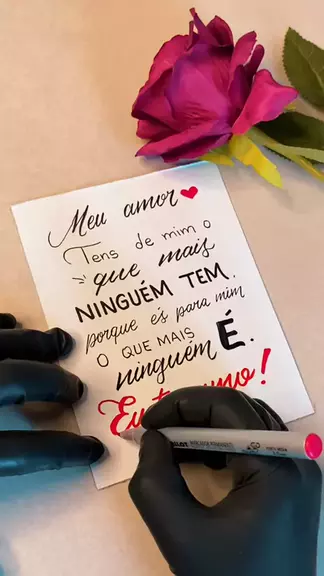 Meu amor
Tens de mim o
que mais
NINGUÉM TEM.
porque és para mim
O QUE MAIS
ninguém É.
Eu amo!